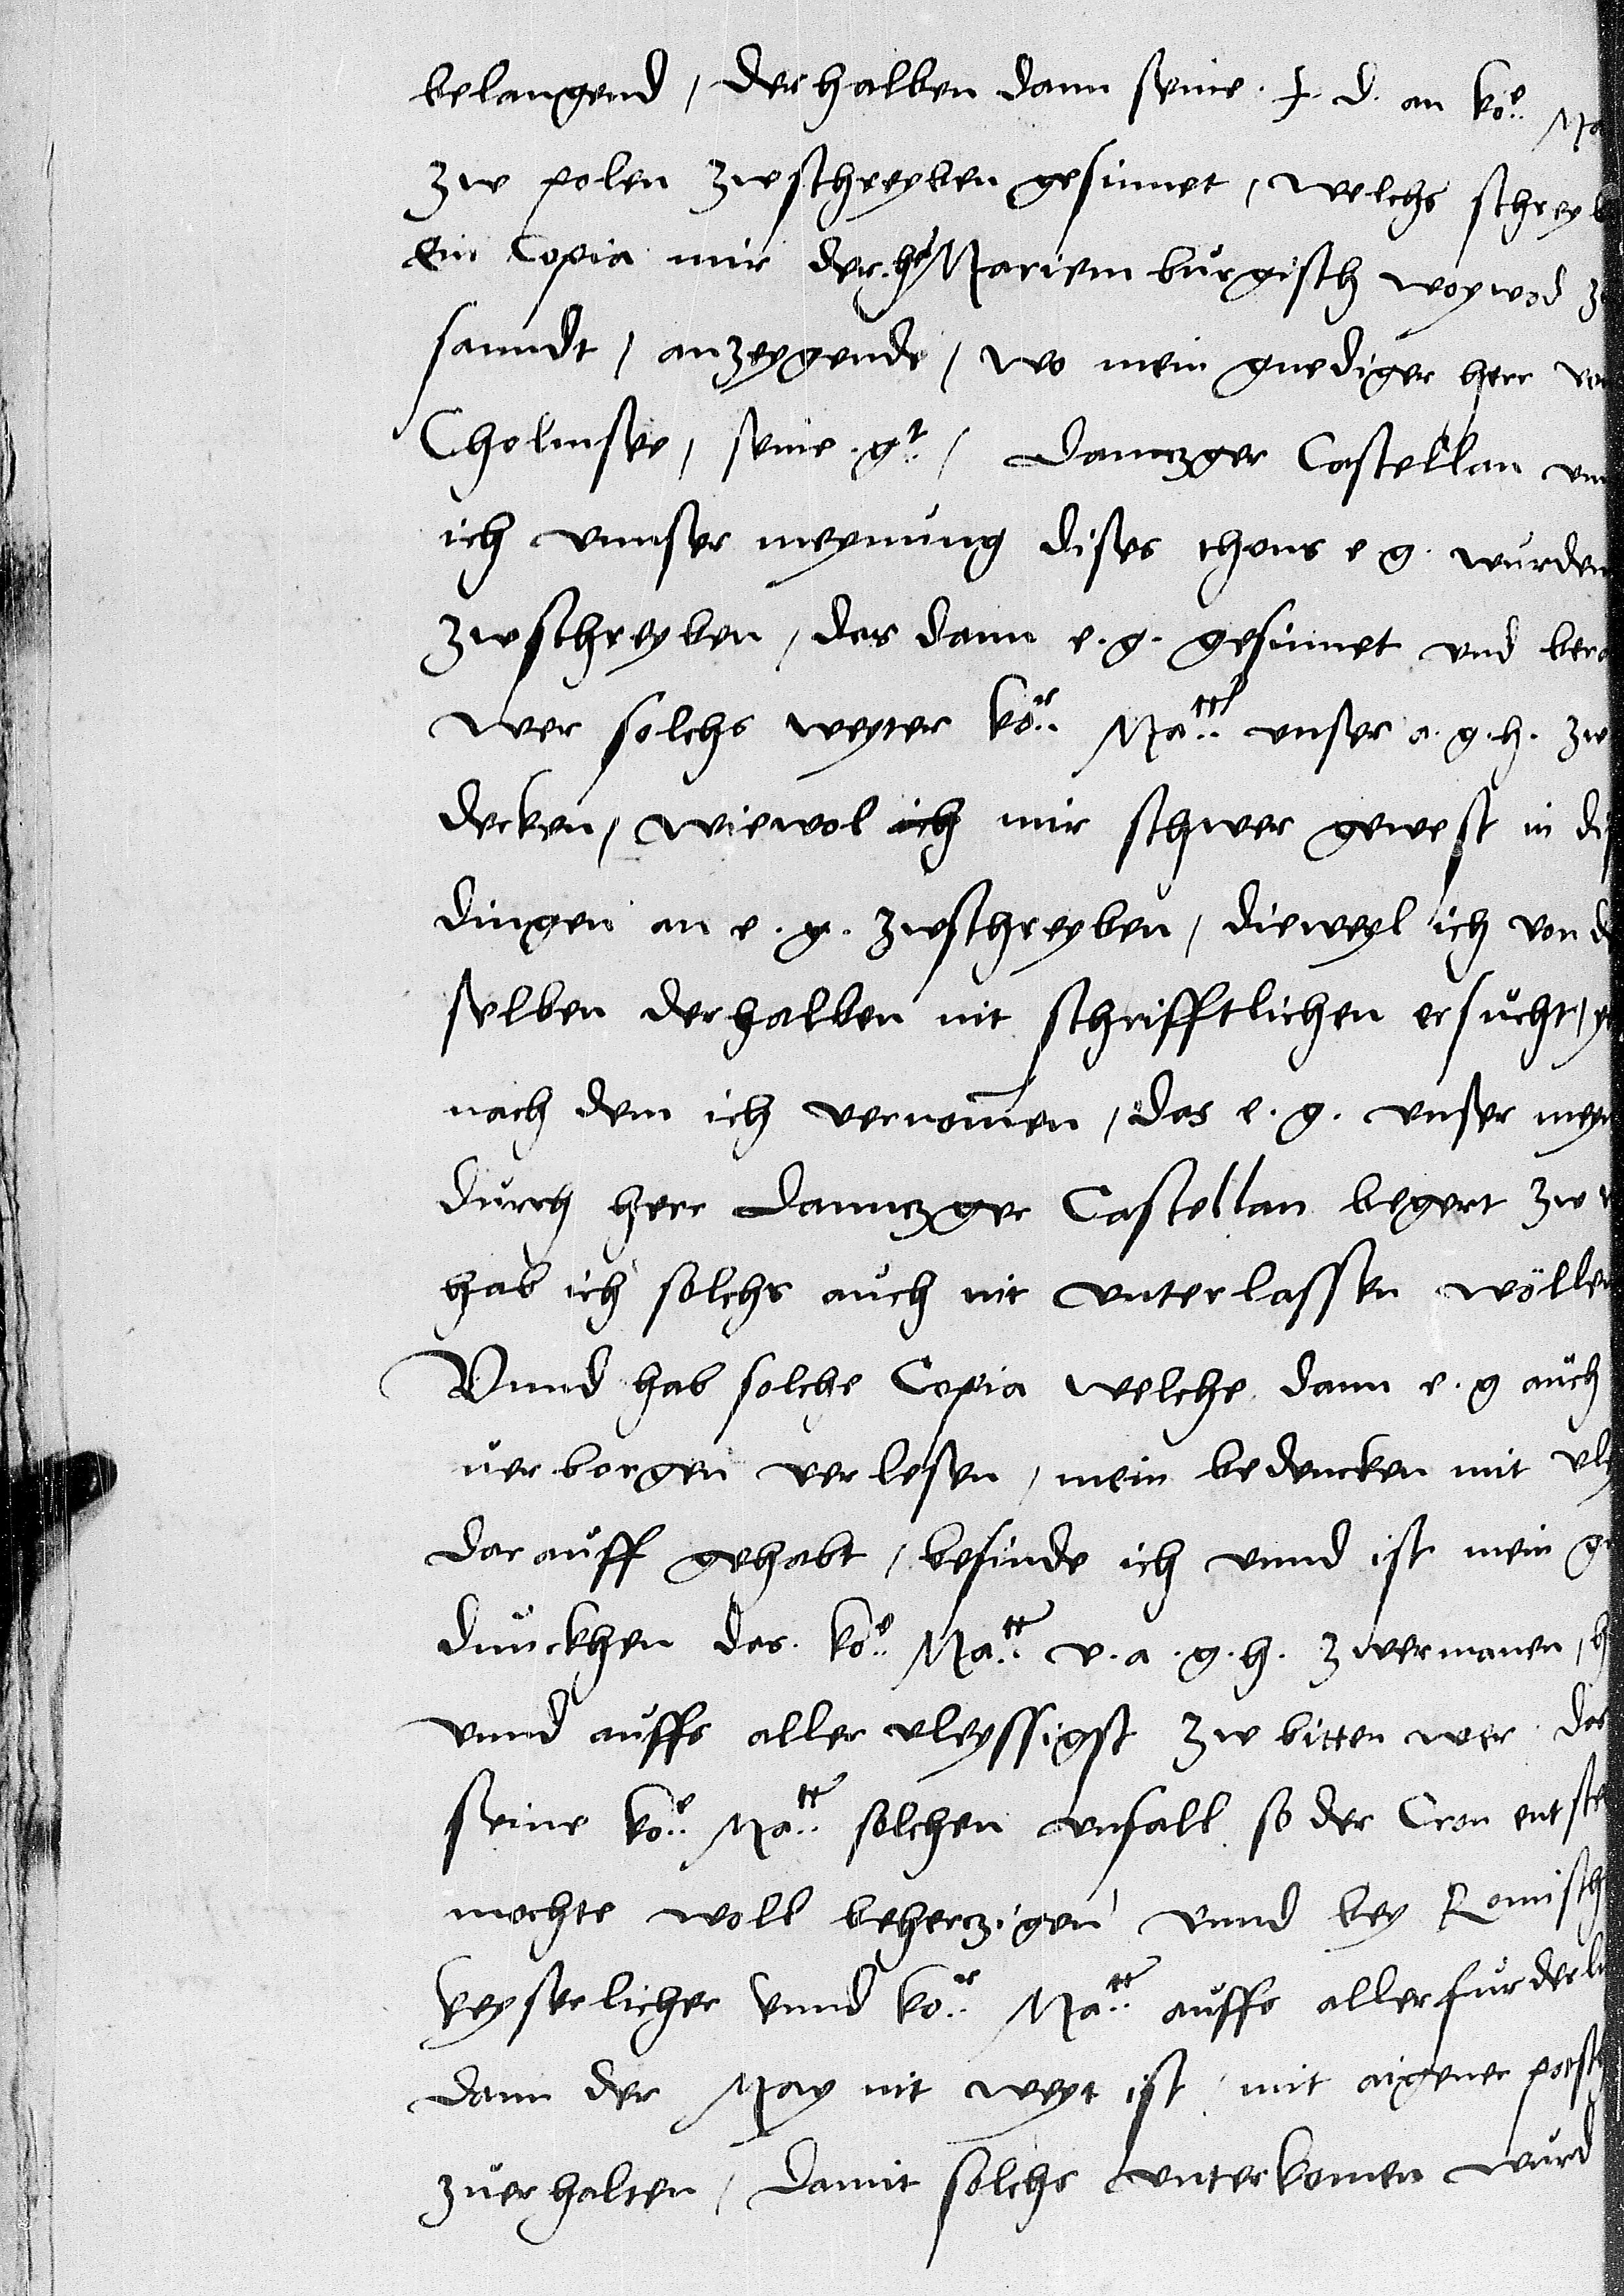 belangend / derhalben dann seine. f. d. an ko.e Ma
zw polen zwschreyben gesinnet, welchs schreyb
Ein Copia mir der. her Marienburgisch woywod z
sanndt / anzeygende / wo mein gnediger herr von
Cholmsee / seine. g.t / Dannczger Castellan vn
ich vnnser meynung dises thons e g. wurden
zwschreyben / das dann e. g. gesinnet vnd ber
wer solchs weyter ko.r Ma.tt vnser a. g. h. zw
decken / wiewol ich mir schwer gewest in dis
dingen an e. g. zwschreyben / dieweyl ich von de
selben derhalben nit schrifftlichen ersucht /
nach dem ich vernomen / das e. g. vnser meyn
durch herr Dannczger Castellan begert zw
hab ich solchs auch nit vnterlassen wöllen
Vnnd hab solche Copia welche dann e. g auch
uerborgen verlesen / mein bedencken mit vley
darauff gehabt / befinde ich vnnd ist mein ge
dunckhen das. ko.e Ma.tt v. a. g. h. zwermanen / h
vnnd auffs aller vleyssigst zw bitten wer das
seine ko.e Ma.tt solchen vnfall so der Cron entste
mochte woll beherczigen vnnd bey Romisch
keyserlicher vnnd ko.r Ma.tt auffs allerfurderli
dann der May nit weyt ist / mit aigener post
zuerhalten / damit solchs vnterkomen wurd